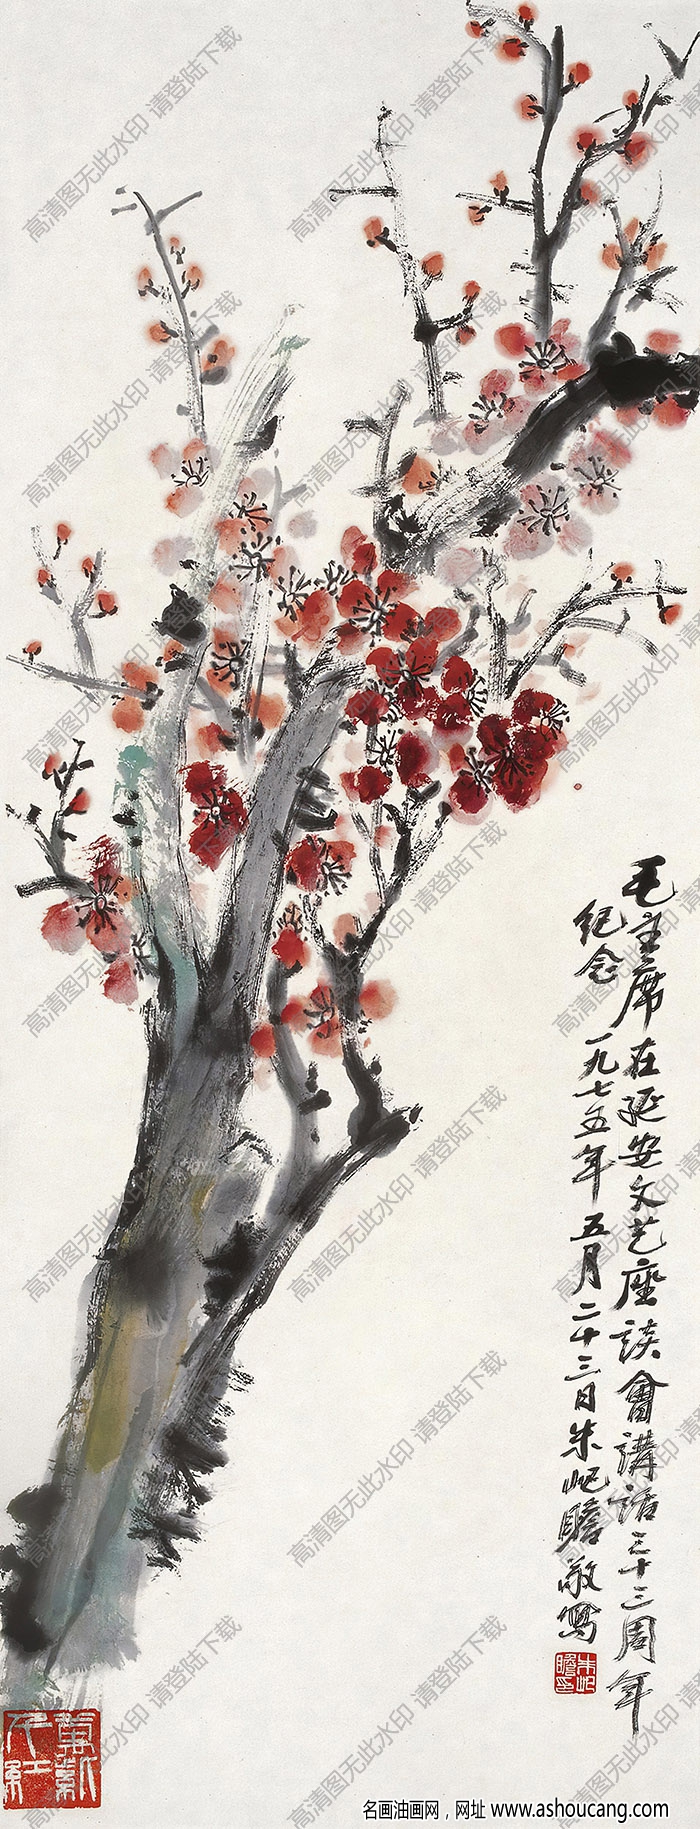 毛主席在延安文艺座談會講話三十三周年
纪念 一九七五年五月二十三日朱屺瞻敬寫
朱屺瞻印
萬新千紅
高清图无此水印 请登陆下载
名画油画网，网址 www.ashoucang.com